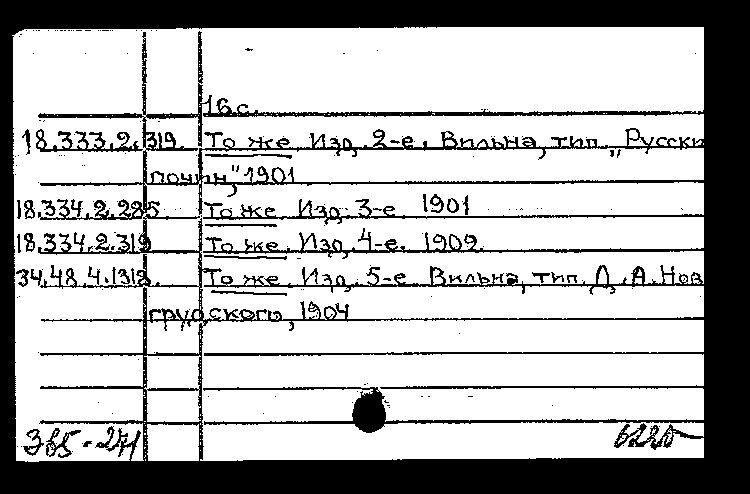 16 с.
18.333.2.319 То же. Изд. 2-е. Вильна, тип. „Русски
почин,“ 1901
18.334.2.285. То же. Изд. 3-е. 1901
18.334.2.319 То же. Изд. 4-е. 1902.
34.48.4.1318. То же. Изд. 5-е. Вильна, тип. Д. А. Нов
грудского, 1904
365-271 6220